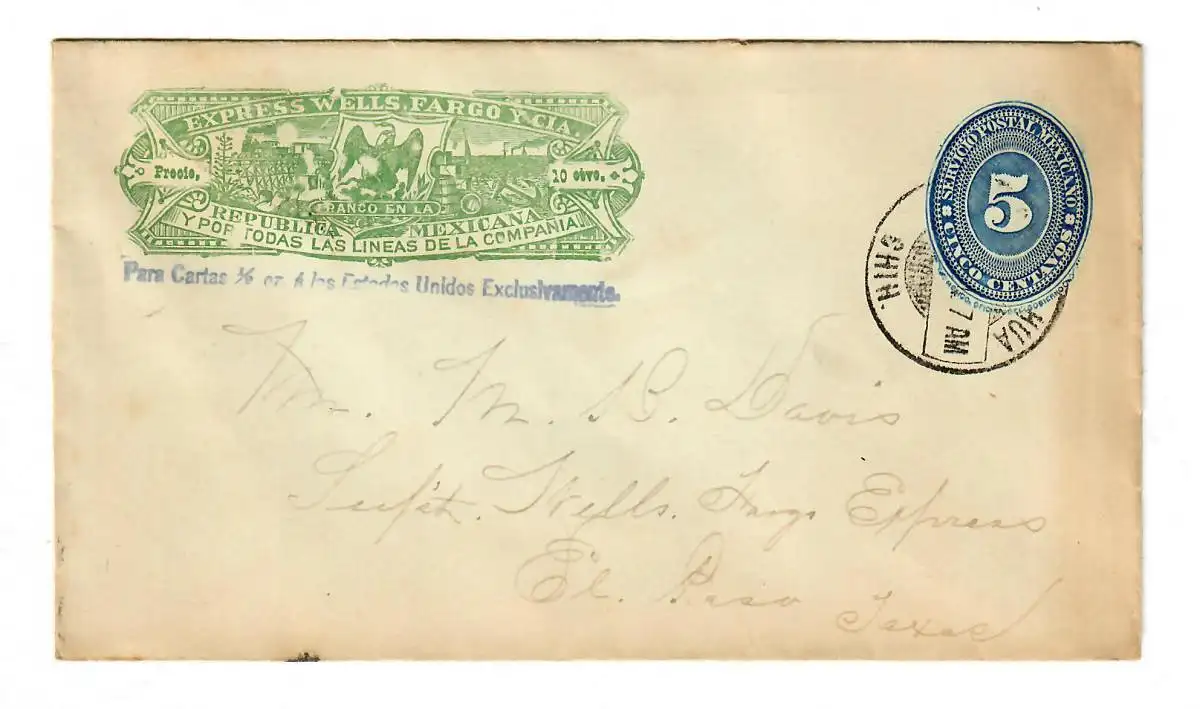 EXPRESS WELLS, FARGO Y CIA.
Precio, 10 ctvo.
FRANCO EN LA
REPUBLICA MEXICANA
Y POR TODAS LAS LINEAS DE LA COMPAÑIA
Para Cartas ½ oz. á los Estados Unidos Exclusivamente.
SERVICIO POSTAL MEXICANO
5
CINCO CENTAVOS
CHIH HUA
7 AM
Mr. M. B. Davis
Supt. Wells. Fargo Express
El. Paso
Texas